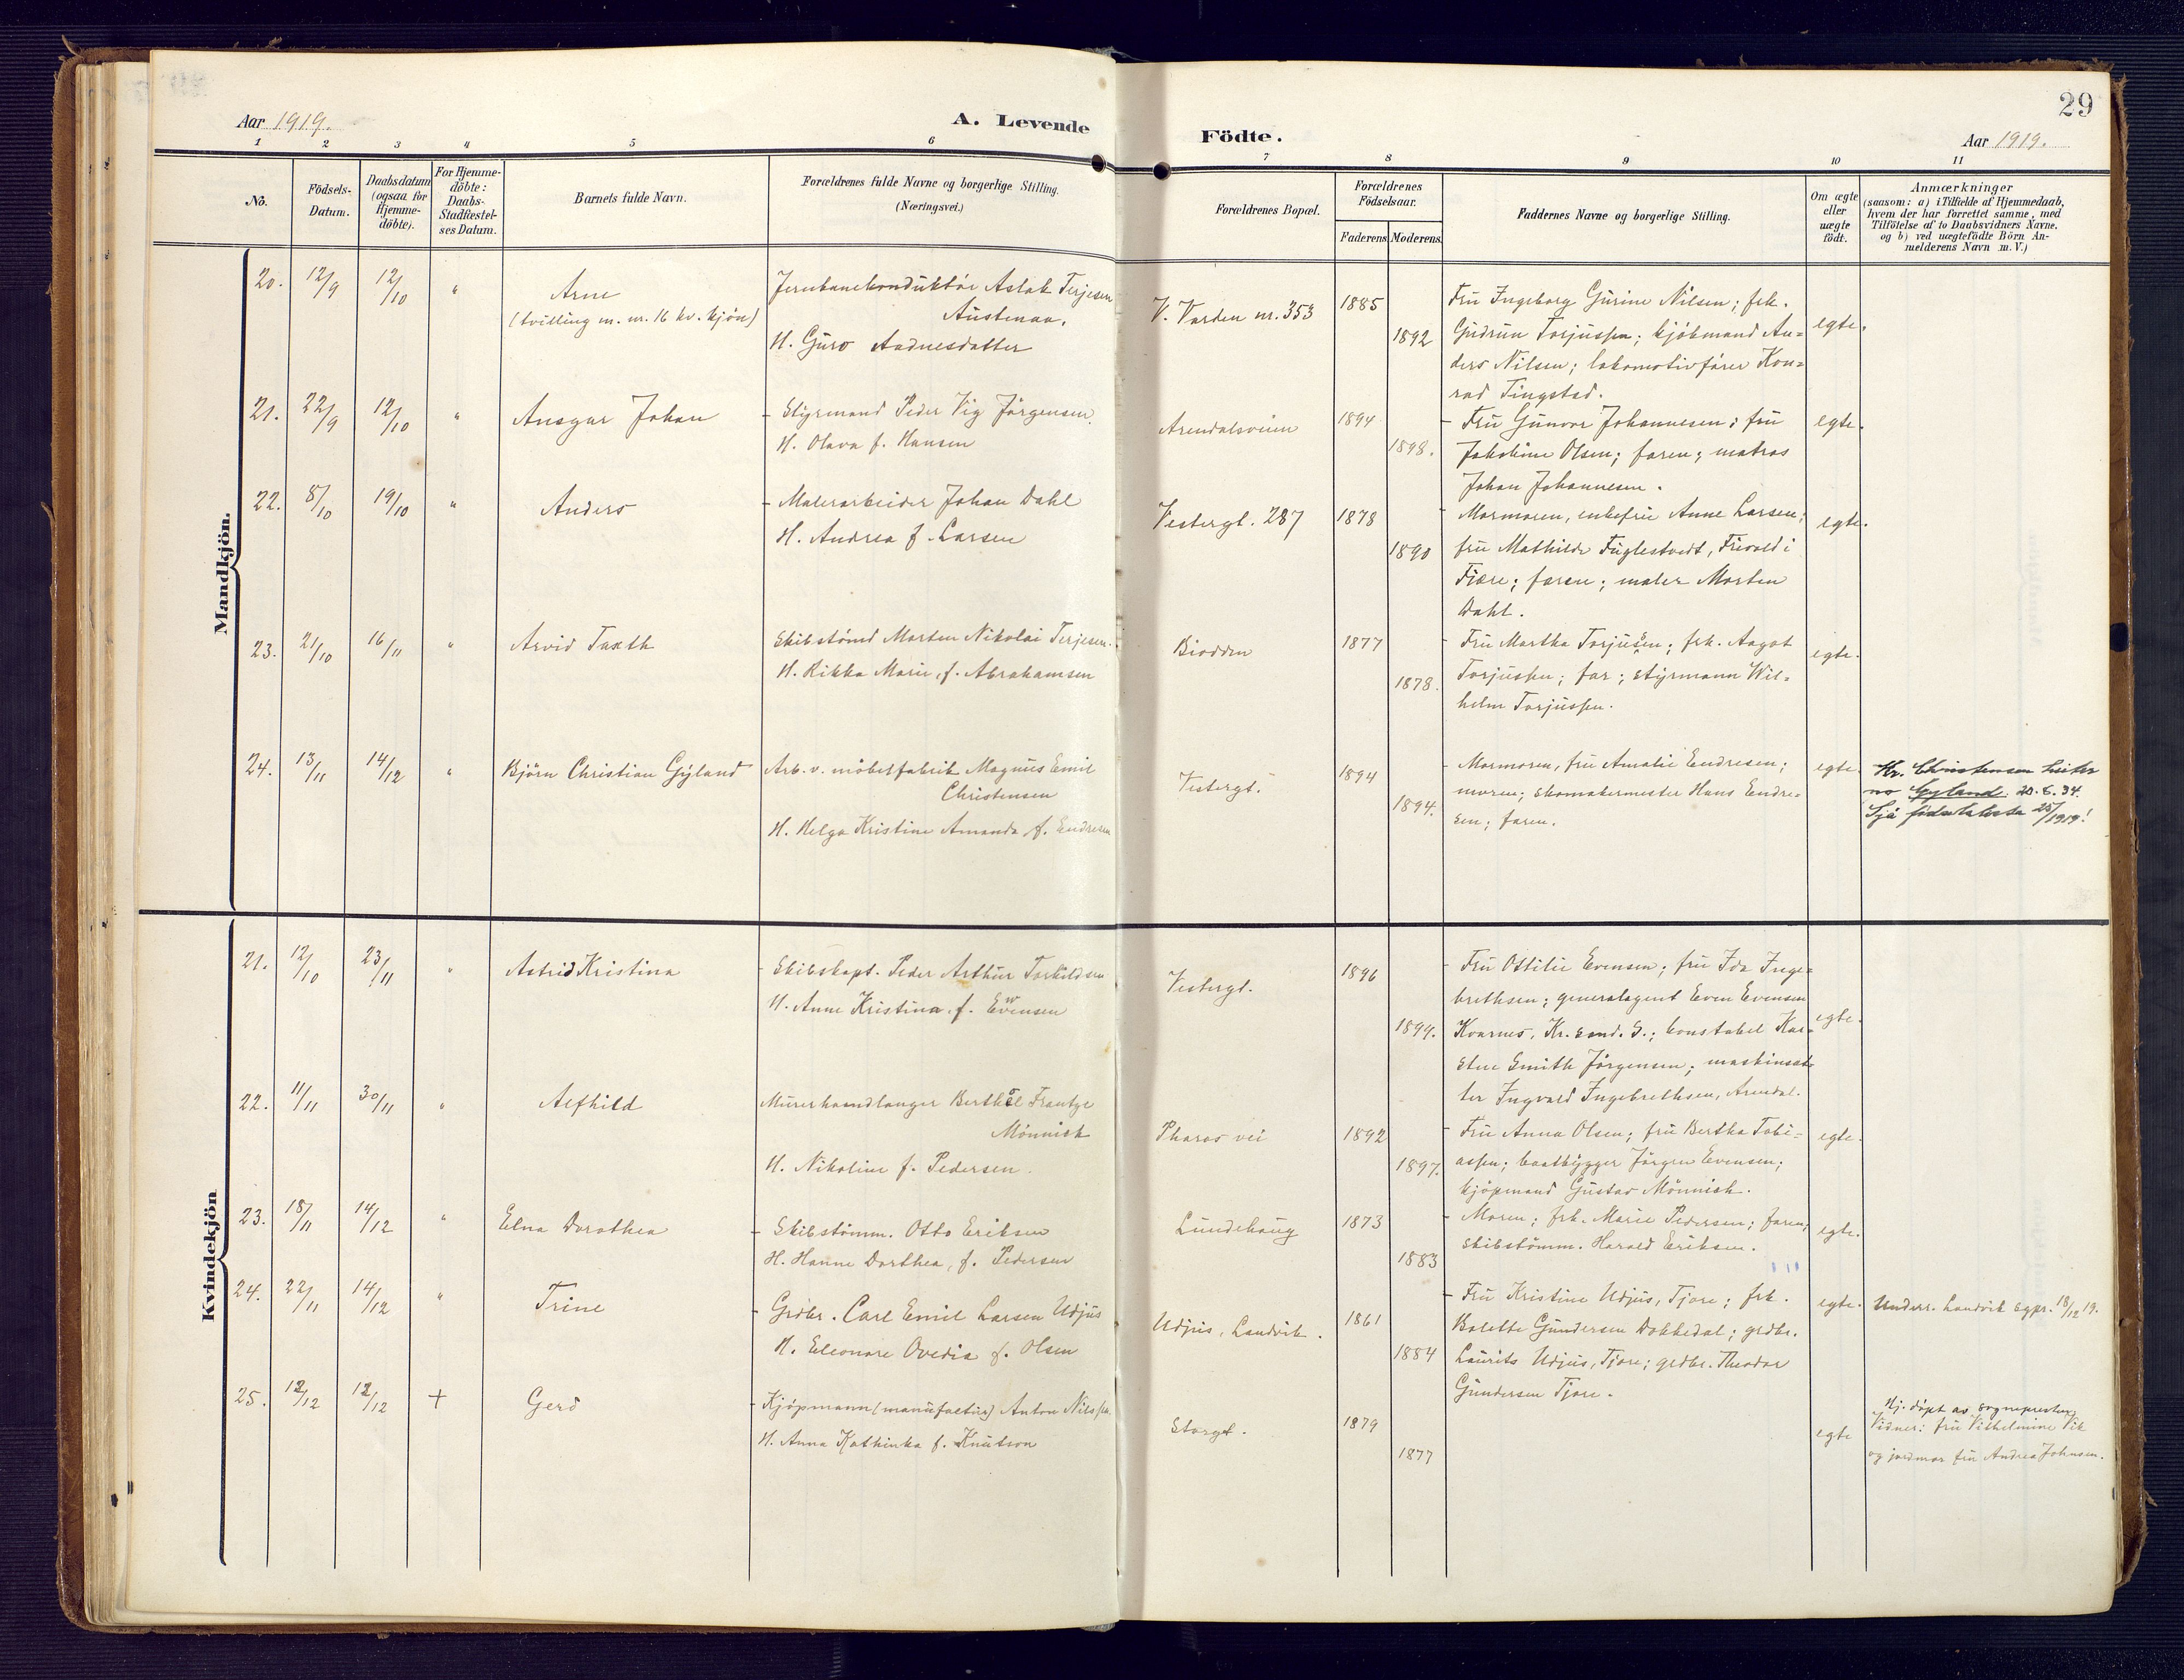 29
Aar 1919.
A. Levende
Födte.
Aar 1919.
1 2 3 4 5 6 7 8 9 10 11
No.
Födsels-Datum.
Daabsdatum (ogsaa for Hjemme-döbte).
For Hjemme-döbte: Daabs-Stadfæstel-ses Datum.
Barnets fulde Navn.
Forældrenes fulde Navne og borgerlige Stilling.
(Næringsvei.)
Forældrenes Bopæl.
Forældrenes Födselsaar.
Faderens. Moderens.
Faddernes Navne og borgerlige Stilling.
Om ægte eller uægte födt.
Anmærkninger
(saasom: a) i Tilfælde af Hjemmedaab,
hvem der har forrettet samme, med
Tilföielse af to Daabsvidners Navne,
og b) ved uægtefödte Börn An-
melderens Navn m. V.)
Mandkjön.
20. 12/9 12/10 "
Arne
(tvilling m. nr. 16 kv. kjön)
Jernbanekonduktör Aslak Terjesen
Austenaa.
H. Guro Aadnesdatter
V. Varden nr. 353
1885
1892
Fru Ingeborg Gurine Nilsen; frk.
Gudrun Torjussen; kjöbmand An=
ders Nilsen; lokomotivförer Kon=
rad Tingstad.
egte.
21. 22/9 12/10 "
Ansgar Johan
- Styrmand Peder Vig Jörgensen.
H. Olava f. Hansen
Arendalsveien
1894
1898.
- Fru Gunvor Johannesen; fru
Jakobine Olsen; faren; matros
Johan Johannesen.
egte.
22. 8/10 19/10 "
Anders
- Malerarbeider Johan Dahl
H. Andrea f. Larsen
Vestergt. 287
1878
1890
- Mormoren, enkefru Anne Larsen;
fru Mathilde Fuglestvedt, Frivold i
Fjære; faren; maler Morten
Dahl.
egte.
23. 21/10 16/11 "
Arvid Taxth
Skibstömd Morten Nikolai Terjesen.
H. Rikka Marie, f. Abrahamsen
Biodden
1877
1878.
- Fru Martha Torjusen; frk. Aagot
Torjussen; far; styrmann Wil=
helm Torjussen.
egte.
24. 13/11 14/12 "
Björn Christian Gyland
Arb. v. möbelfabrik Magnus Emil
Christensen
H. Helga Kristine Amanda f. Endresen
Vestergt.
1894
1894.
- Mormoren, fru Amalie Endresen;
moren; skomakermester Hans Endre=
sen; faren.
egte
Kr. Christensen heiter
no Gyland. 20.6.34.
Sjå 25/1919!
Kvindekjön
21. 12/10 23/11 "
Astrid Kristina
- Skibskapt. Peder Arthur Torkildsen
H. Anne Kristina f. Evensen
Vestergt.
1896
1899.
- Fru Ottilie Evensen; fru Ida Inge=
brethsen; generalagent Even Evensen
Kvarnes, Kr.sand. S.; konstabel Kar=
sten Smith Jörgensen; maskinsat=
ter Ingvald Ingebrethsen, Arendal.
egte.
22. 11/11 30/11 "
Alfhild
Murerhaandlanger Berthel Frantze
Mönnich
H. Nikoline f. Pedersen.
Pharos vei
1892
1897.
- Fru Anna Olsen; fru Bertha Tobi=
assen; baatbygger Jörgen Evensen;
kjöpmand Gustav Mönnich.
egte.
23. 18/11 14/12 "
Elna Dorothea
- Skibstömm. Otto Eriksen
H. Hanne Dorthea, f. Pedersen
Lundehaug
1873
1883
- Moren; frk. Marie Pedersen; faren;
skibstömm. Harald Eriksen.
egte.
24. 22/11 14/12 "
Trine
- Grdbr. Carl Emil Larsen Udjus
H. Eleonore Ovedia f. Olsen
Udjus, Landvik.
1861
1884
- Fru Kristine Udjus, Tjore; frk.
Bolette Gundersen Dokkedal; grdbr.
Laurits Udjus, Tjore; grdbr. Theodor
Gundersen Tjore.
egte.
Underr. Landvik sgpr. 18/12 19.
25. 12/12 12/12 +
Gerd
- Kjöpmann (manufaktur) Anton Nilssen.
H. Anna Kathinka f. Knutson
Storgt.
1879
1877
egte
Hj. döpt av sognepresten
Vidner: fru Vilhelmine Vik
og jordmor fru Andrea Johnsen.